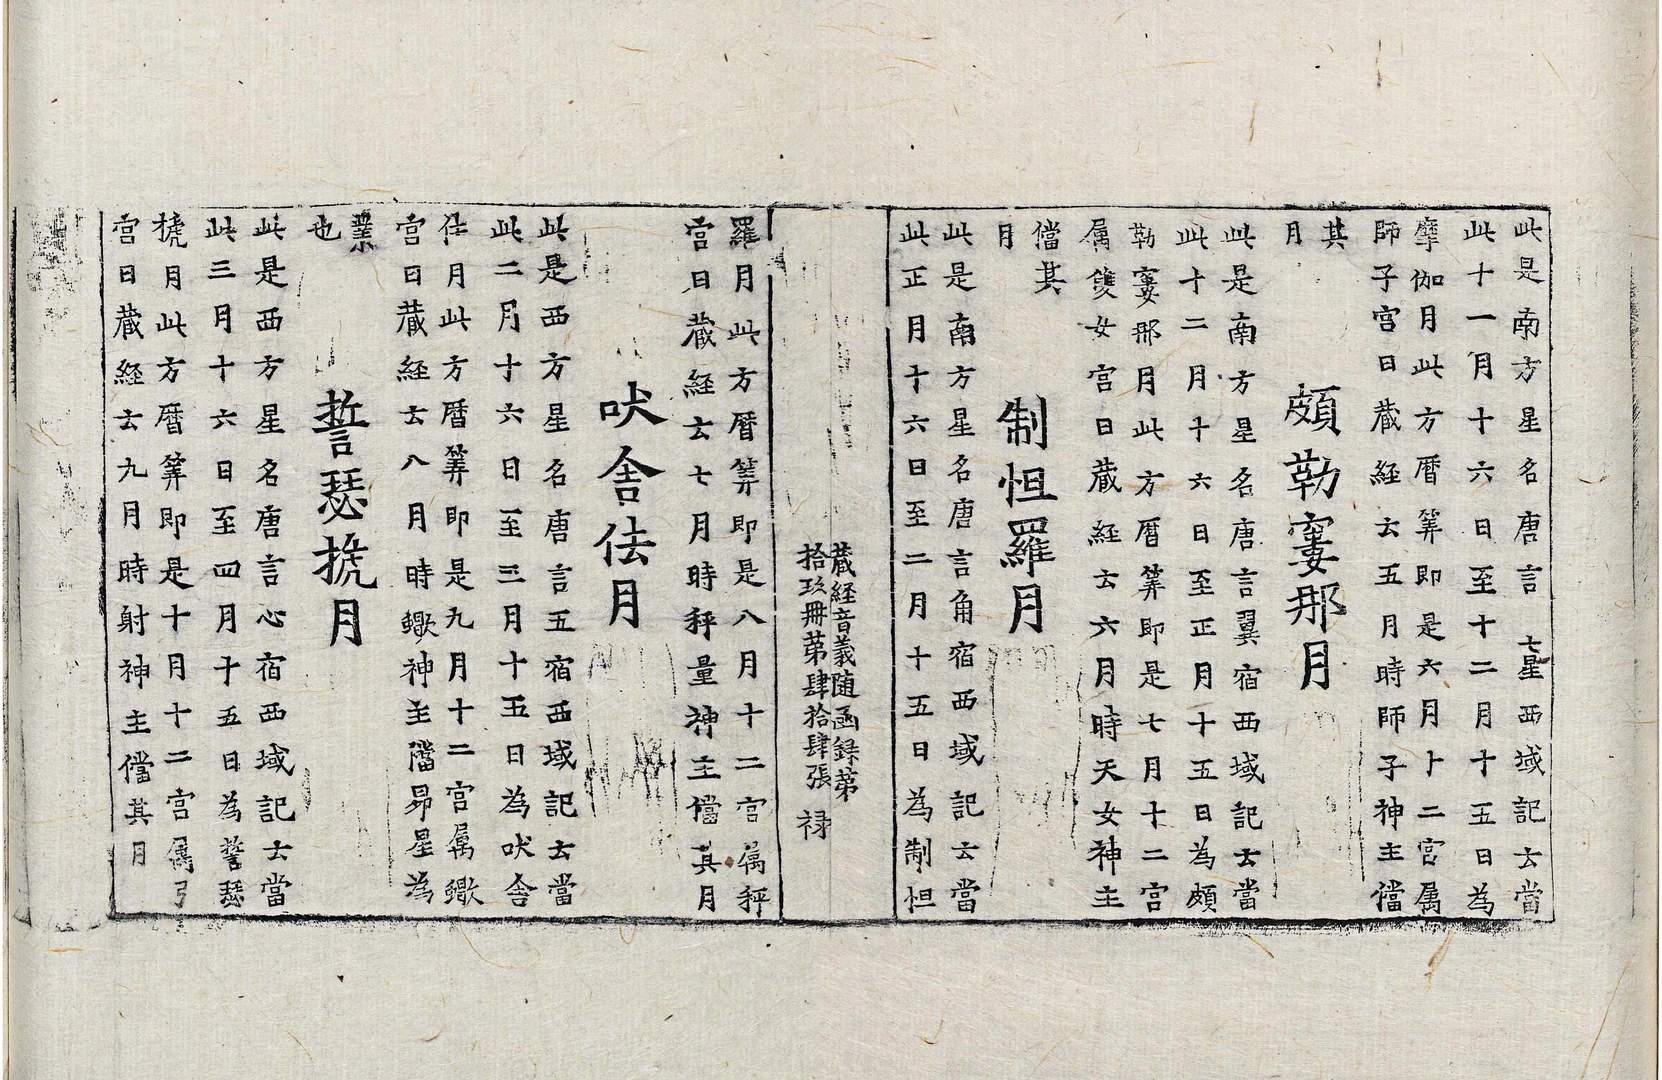 此是南方星名唐言七星西域記云當
此十一月十六日至十二月十五日為
摩伽月此方曆筭即是六月十二宮属
師子宮日藏経云五月時師子神主儅
其
月
頗勒窶那月
此是南方星名唐言翼宿西域記云當
此十二月十六日至正月十五日為頗
勒窶那月此方曆筭即是七月十二宮
属雙女宮日藏経云六月時天女神主
儅其
月
制怛羅月
此是南方星名唐言角宿西域記云當
此正月十六日至二月十五日為制怛
藏経音義随函録第
拾玖冊第肆拾肆張 禄
羅月此方曆筭即是八月十二宮属秤
宮日藏経云七月時秤量神主儅其月
吠舍佉月
此是西方星名唐言五宿西域記云當
此二月十六日至三月十五日為吠舍
佉月此方曆筭即是九月十二宮属蠍
宮日藏経云八月時蠍神主儅昴星為
業
也
誓瑟搋月
此是西方星名唐言心宿西域記云當
此三月十六日至四月十五日為誓瑟
搋月此方曆筭即是十月十二宮属弓
宮日藏経云九月時射神主儅其月